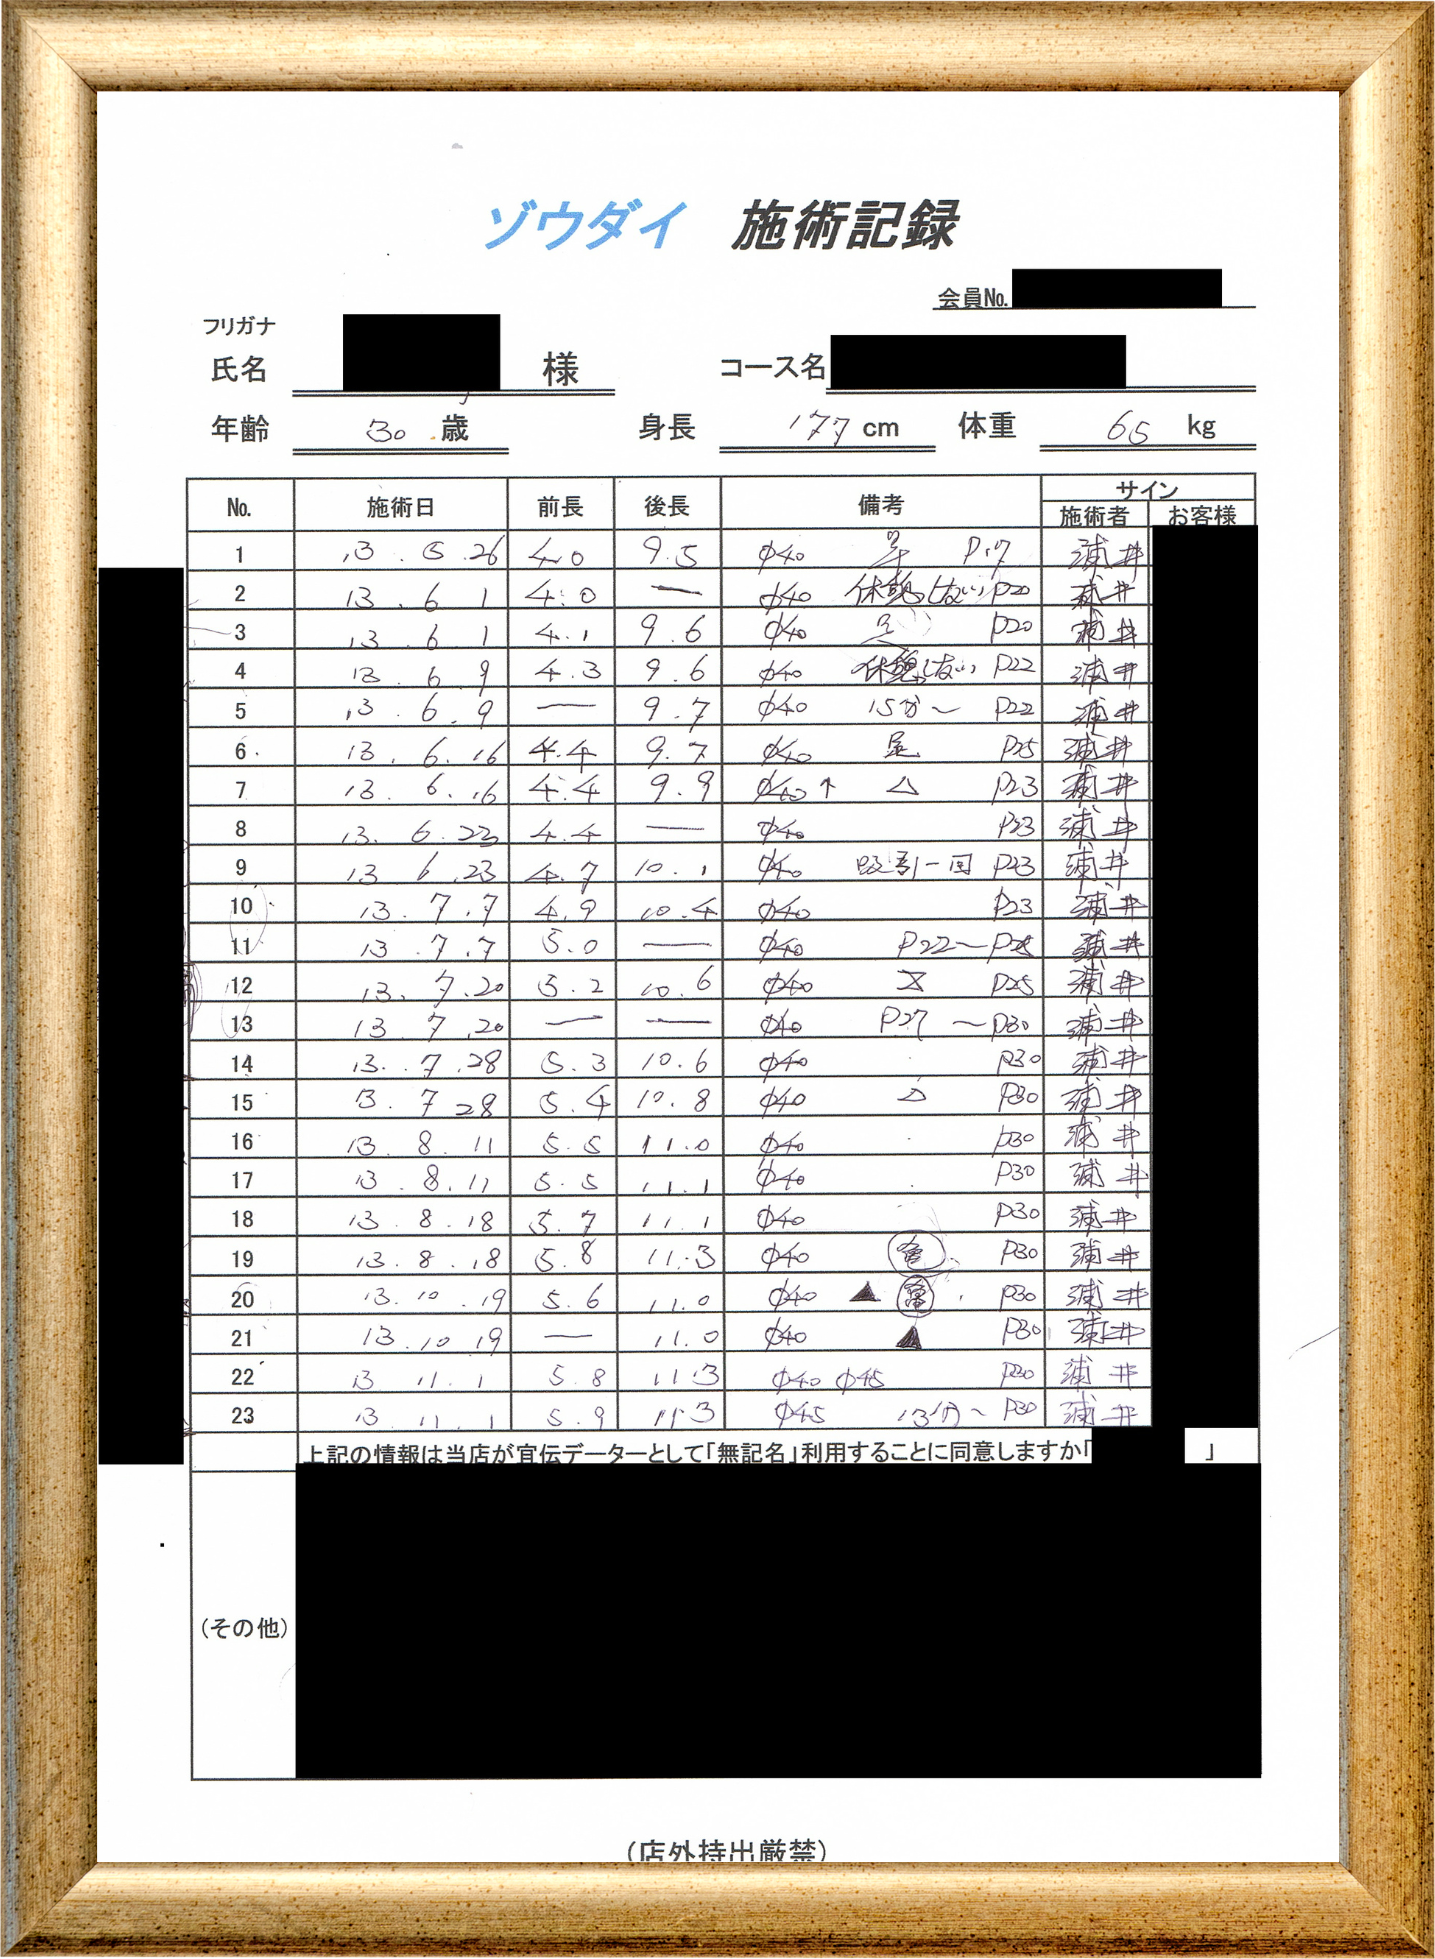 ゾウダイ 施術記録
会員No.
フリガナ
氏名 様 コース名
年齢 30 歳 身長 177 cm 体重 65 kg
No. 施術日 前長 後長 備考 サイン
施術者 お客様
1 13.5.26 4.0 9.5 φ40 P17 浦井
2 13.6.1 4.0 — φ40 休憩しない P20 浦井
3 13.6.1 4.1 9.6 φ40 P20 浦井
4 13.6.9 4.3 9.6 φ40 休憩しない P22 浦井
5 13.6.9 — 9.7 φ40 15分〜 P22 浦井
6 13.6.16 4.4 9.7 φ40 P25 浦井
7 13.6.16 4.4 9.9 φ40↑ △ P23 浦井
8 13.6.23 4.4 — φ40 P23 浦井
9 13.6.23 4.7 10.1 φ40 吸引一回 P23 浦井
10 13.7.7 4.9 10.4 φ40 P23 浦井
11 13.7.7 5.0 — φ40 P22〜P25 浦井
12 13.7.20 5.2 10.6 φ40 P25 浦井
13 13.7.20 — — φ40 P27〜P30 浦井
14 13.7.28 5.3 10.6 φ40 P30 浦井
15 13.7 28 5.4 10.8 φ40 △ P30 浦井
16 13.8.11 5.5 11.0 φ40 P30 浦井
17 13.8.11 5.5 11.1 φ40 P30 浦井
18 13.8.18 5.7 11.1 φ40 P30 浦井
19 13.8.18 5.8 11.3 φ40 P30 浦井
20 13.10.19 5.6 11.0 φ40 ▲ P30 浦井
21 13.10 19 — 11.0 φ40 ▲ P30 浦井
22 13 11.1 5.8 11.3 φ40 φ45 P30 浦井
23 13.11.1 5.9 11.3 φ45 13分〜 P30 浦井
上記の情報は当店が宣伝データーとして「無記名」利用することに同意しますか「 」
(その他)
(店外持出厳禁)